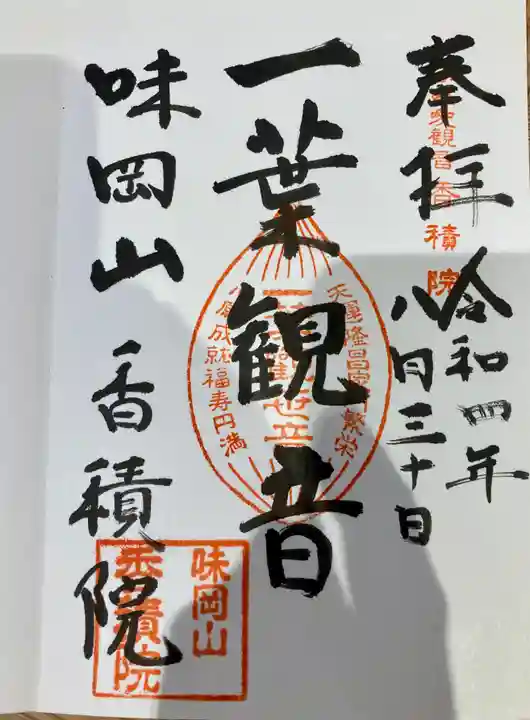 奉拝
令和四年
八月三十日
一葉観音
味岡山 香積院
観音 香積院
天運隆昌家門繁栄
成就福寿円満
味岡山
香積院